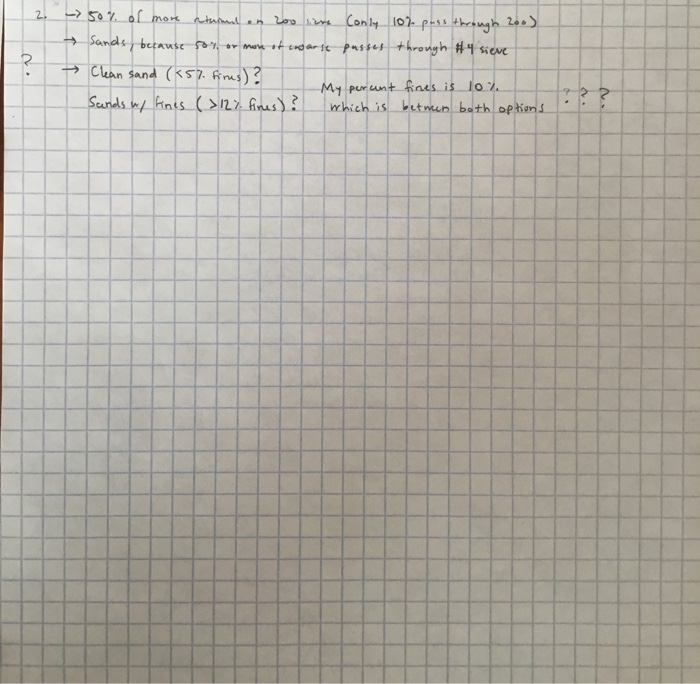 2. → 50% of more retained on 200 sieve (only 10% pass through 200)
→ Sands, because 50% or more of coarse passes through #4 sieve
? → Clean sand (<5% fines)?
My percent fines is 10%.
Sands w/ fines (>12% fines)? which is between both options ???